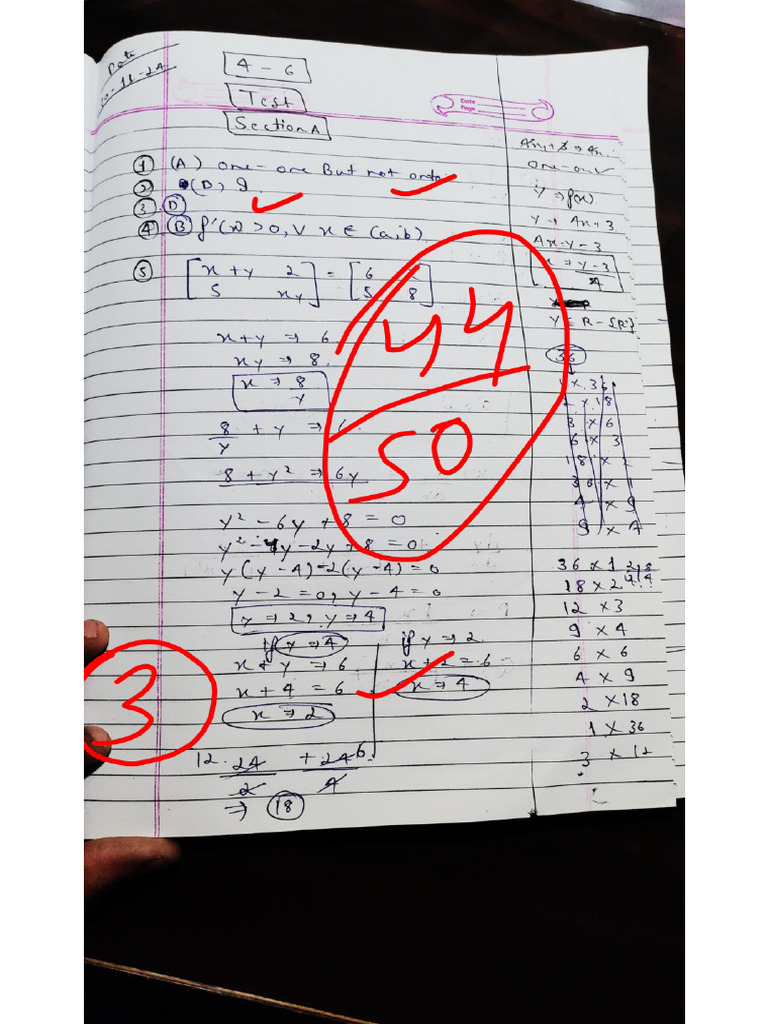 Date
4 - 6
Test
Section A
① (A) one-one But not onto
② (D) 9.
③ (D)
④ (B) f'(x) > 0, ∀ x ∈ (a,b)
⑤ [x+y 2 / 5 xy] = [6 2 / 5 8]
x+y ⇒ 6
xy ⇒ 8.
x ⇒ 8/y
8/y + y ⇒ 6
8 + y² ⇒ 6y
y² - 6y + 8 = 0
y² - 4y - 2y + 8 = 0
y(y-4) - 2(y-4) = 0
y - 2 = 0, y - 4 = 0
y ⇒ 2, y ⇒ 4
if y ⇒ 4
x + y ⇒ 6
x + 4 = 6
x ⇒ 2
if y ⇒ 2
x + 2 = 6
x ⇒ 4
12. 24/2 + 24/4 6
⇒ 18
44/50
3
Date
Page
one-one ✓
y ⇒ f(x)
y ⇒ 4x+3
4x = y-3
x ⇒ y-3/4
36
1 × 36
2 × 18
3 × 6
6 × 3
18 × 2
36 × 1
4 × 9
9 × 4
36 × 1
18 × 2
12 × 3
9 × 4
6 × 6
4 × 9
2 × 18
1 × 36
3 × 12